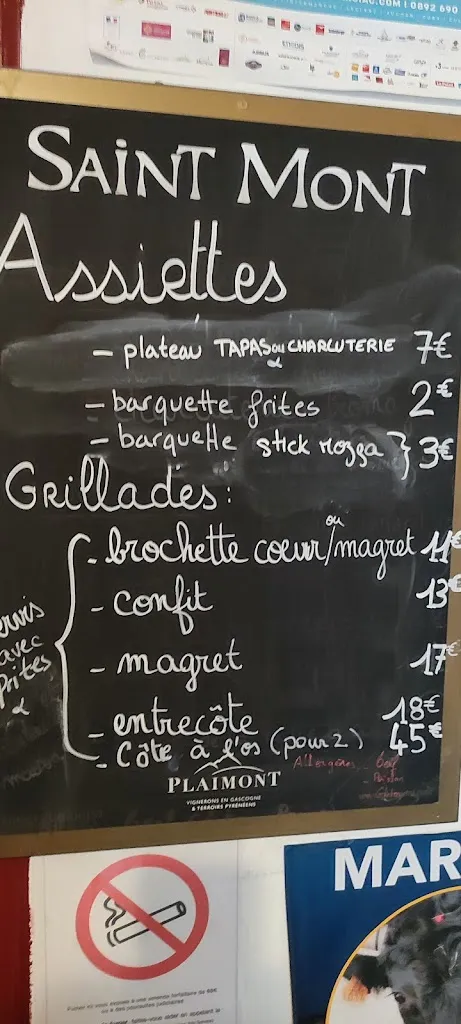 0892 690
SAINT MONT
Assiettes
- plateau TAPAS ou CHARCUTERIE 7€
- barquette frites 2€
- barquette stick mozza } 3€
GRILLADES:
- brochette coeur ou /magret 11€
- confit 13€
avec
frites
- magret 17€
- entrecôte 18€
- Côte à l'os (pour 2) 45€
Allergènes
PLAIMONT
VIGNERONS EN GASCOGNE
& TERROIRS PYRÉNÉENS
MAR